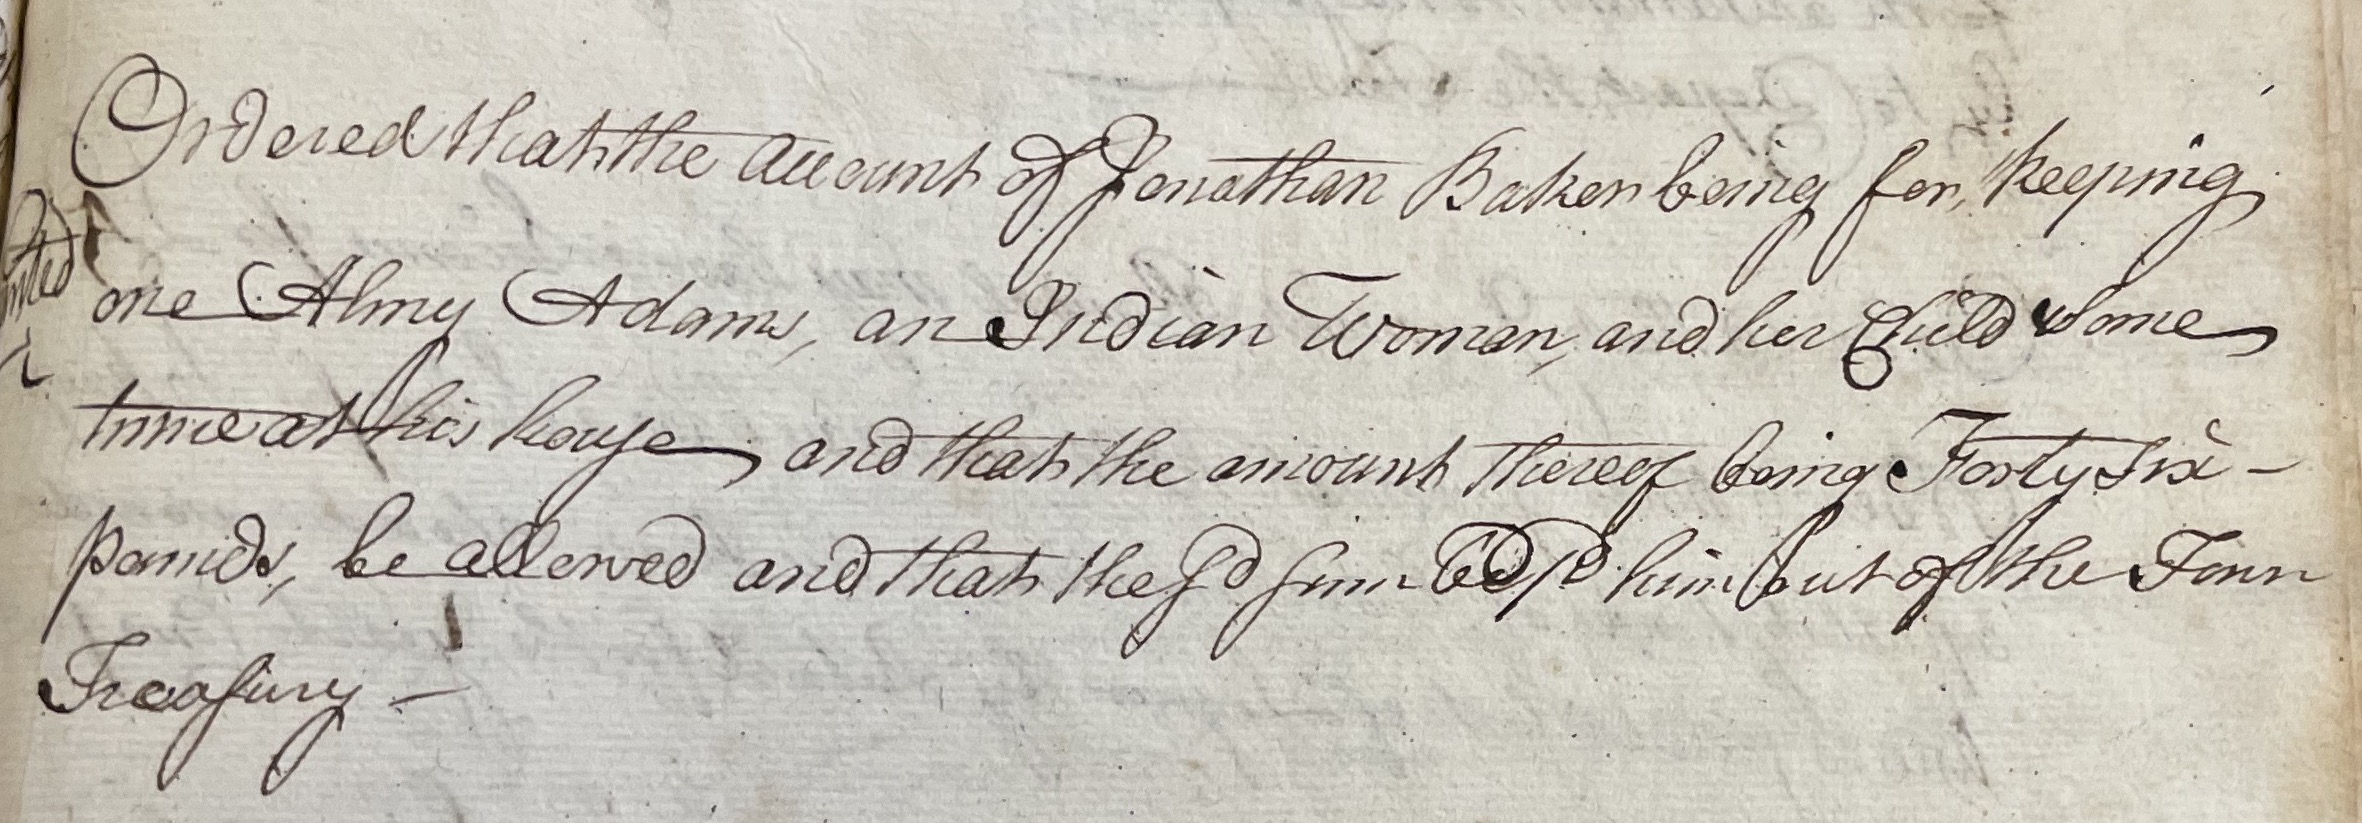 Ordered that the Account of Jonathan Baker being for, keeping
one Almy Adams, an Indian Woman, and her Child Some
time at his house, and that the amount thereof being Forty Six -
pounds, be allowed and that the sd sum be pd. him out of the Town
Treasury -